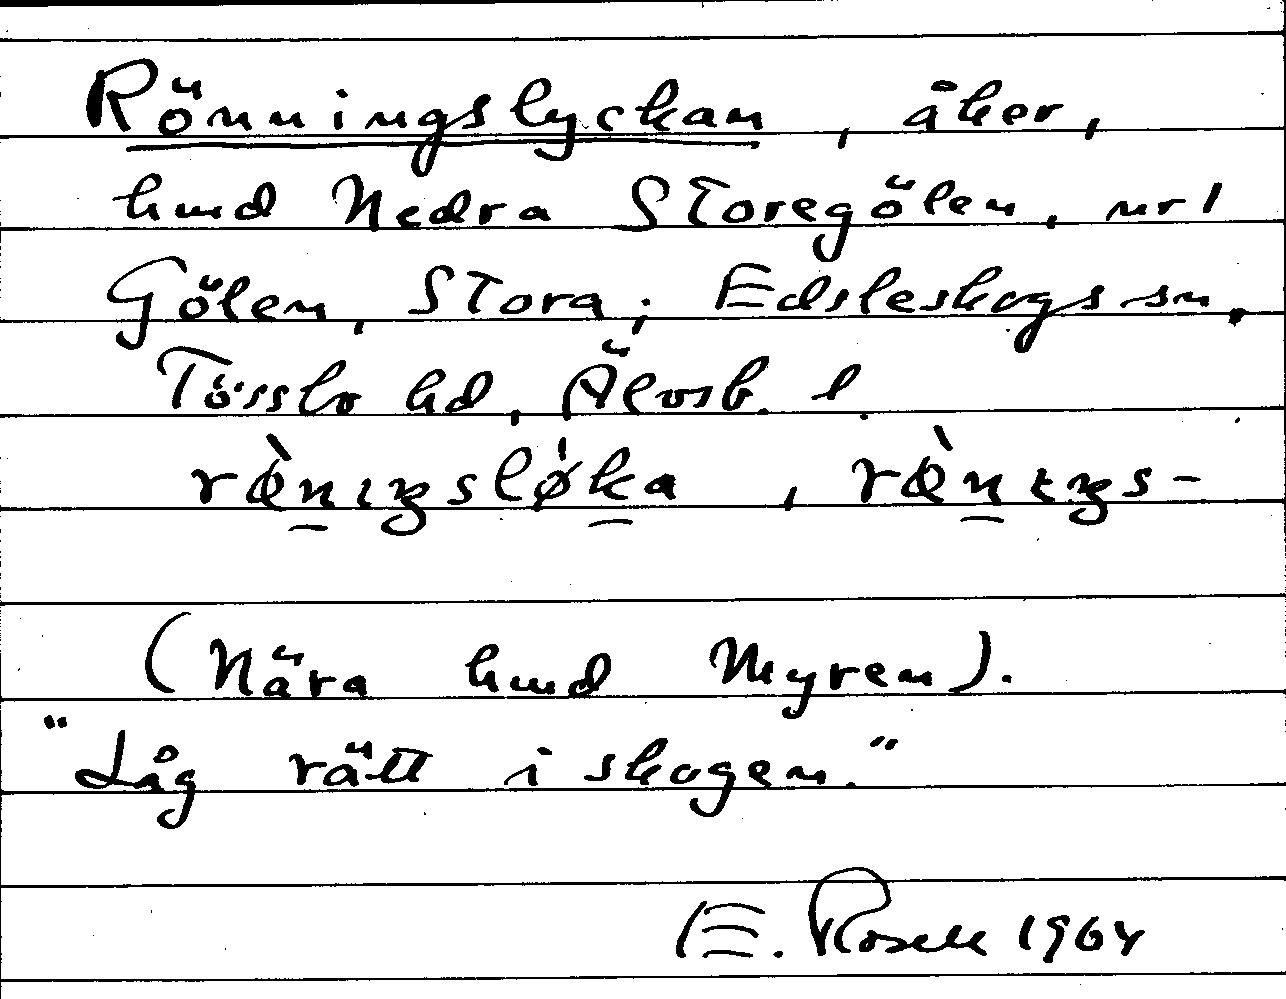 Rönningslyckan, åker,
hmd Nedra Storegölen, nr 1
Gölen, Stora; Edsleskogs sn,
Tössbo hd, Älvsb. l.
(Nära hmd Myren).
"Låg rätt i skogen."
E. Rosell 1964